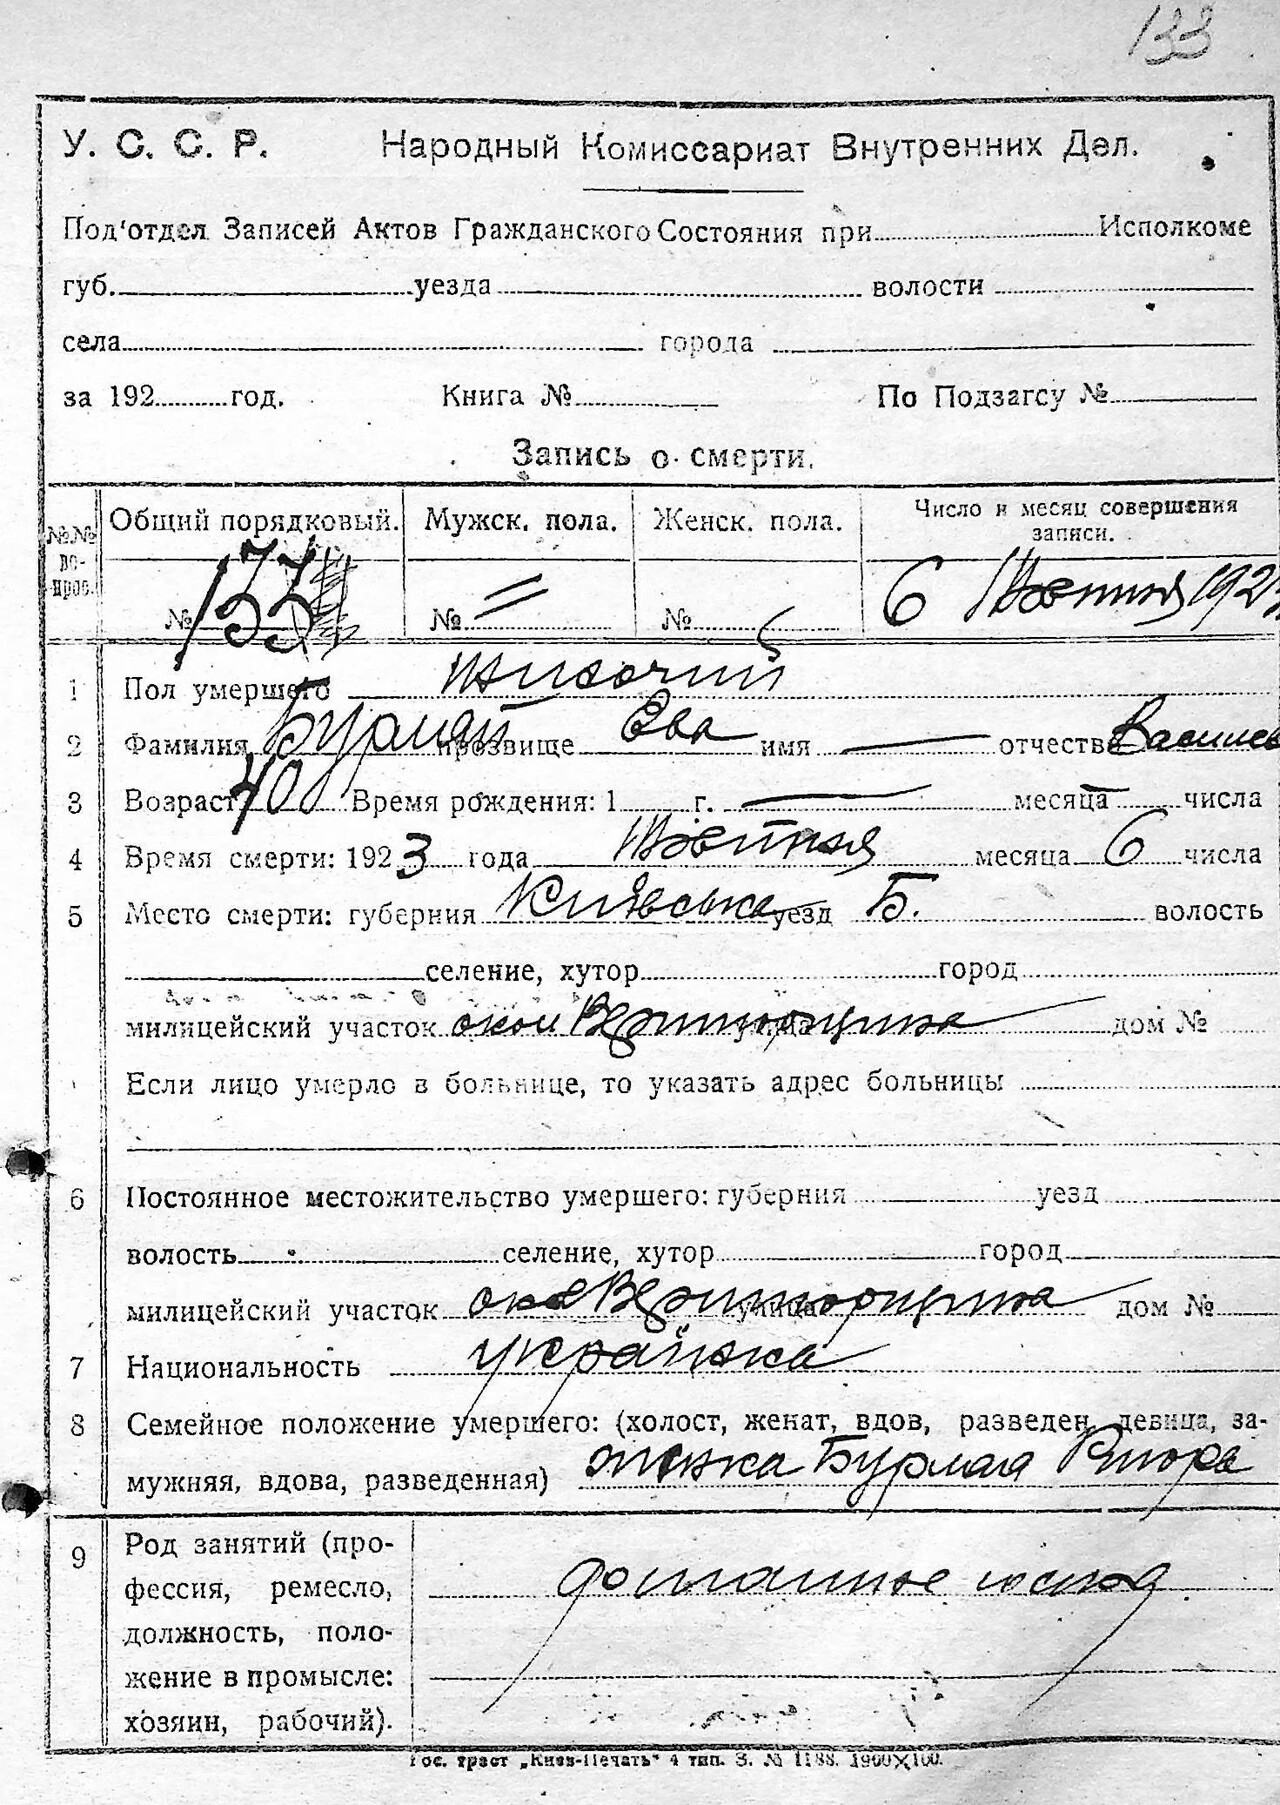 133
У. С. С. Р. Народный Комиссариат Внутренних Дел.
Под'отдел Записей Актов Гражданского Состояния при Исполкоме
губ. уезда волости
села города
за 192 год. Книга № По Подзагсу №
Запись о смерти.
№№ во- прос. Общий порядковый. Мужск. пола. Женск. пола. Число и месяц совершения записи.
№ 133 № = № 6 Жовтня 192
1 Пол умершего жиночий
2 Фамилия Бурлай прозвище Ева имя — отчество Василев
3 Возраст 40 Время рождения: 1 г. — месяца числа
4 Время смерти: 1923 года Жовтня месяца 6 числа
5 Место смерти: губерния Киівська уезд Б. волость
селение, хутор город
милицейский участок улица дом №
Если лицо умерло в больнице, то указать адрес больницы
6 Постоянное местожительство умершего: губерния уезд
волость селение, хутор город
милицейский участок улица дом №
7 Национальность українка
8 Семейное положение умершего: (холост, женат, вдов, разведен, девица, за-
мужняя, вдова, разведенная) жінка Бурлая
9 Род занятий (про-
фессия, ремесло,
должность, поло-
жение в промысле:
хозяин, рабочий).
Гос. трест „Киев-Печать" 4 тип. З. № 1188. 1900×100.